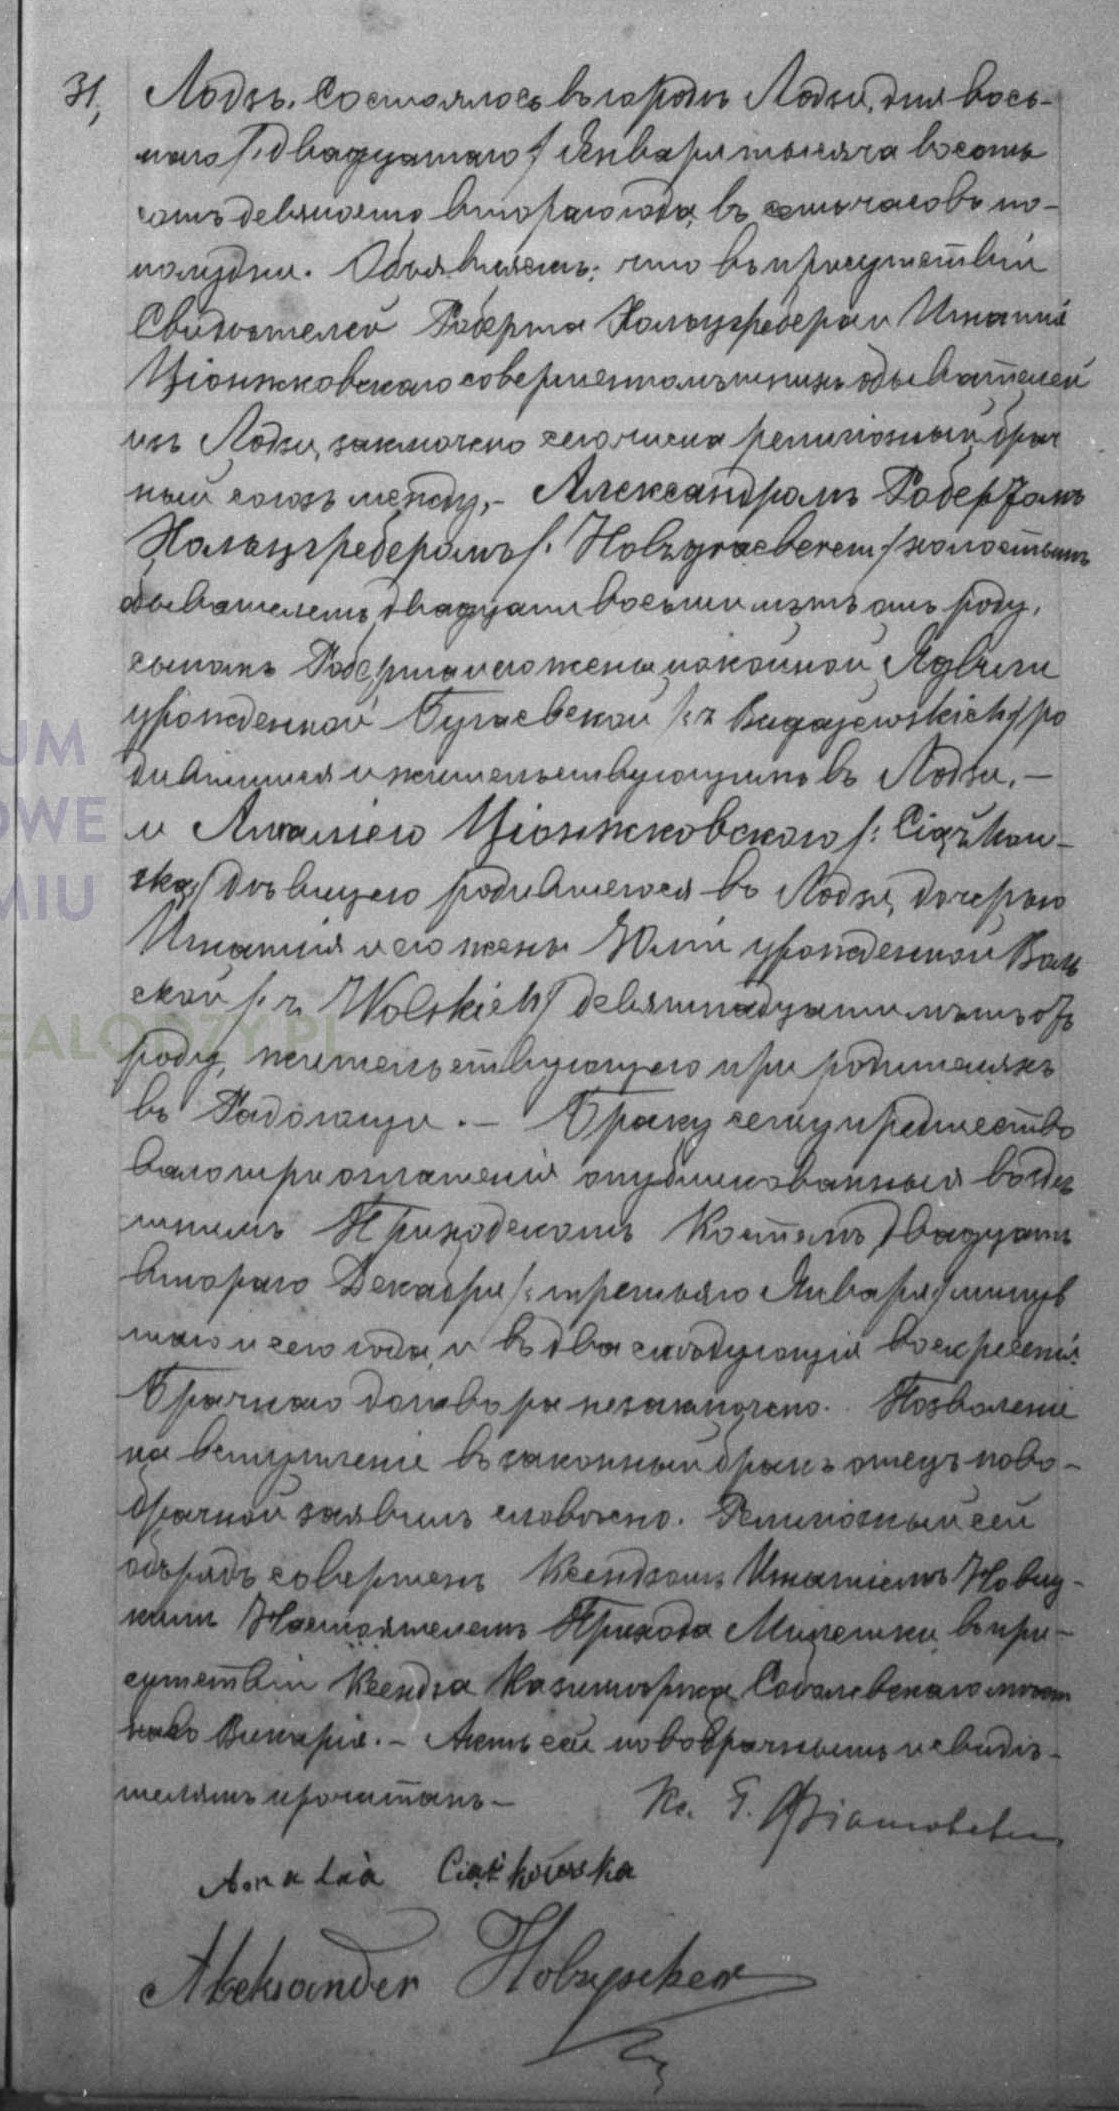 31, Лодзь. Состоялось въ городѣ Лодзи, дня вось-
маго /:двадцатаго/ Января тысяча восемь
сотъ девяносто втораго года, въ семь часовъ по-
полудни. Объявляемъ: что въ присутствіи
Свидѣтелей Роберта Хольцгребера и Игнатія
Ціонжковскаго совершеннолѣтнихъ обывателей
изъ Лодзи, заключено сего числа религіозный брач
ный союзъ между, - Александромъ Робертомъ
Хольцгреберомъ /:Holzgraeberem/ холостымъ
обывателемъ, двадцати восьми лѣтъ отъ роду,
сыномъ Роберта и его жены покойной Ядвиги
урожденной Бугаевской /:z Bugajewskich/ ро
дившимся и жительствующимъ въ Лодзи, -
и Амаліею Ціонжковскою /: Ciążkow-
ską/ дѣвицею родившеюся въ Лодзи, дочерью
Игнатія и его жены Юліи урожденной Воль
ской /:z Wolskich/ девятнадцати лѣтъ отъ
роду, жительствующею при родителяхъ
въ Радогощи. - Браку сему предшество
вало три оглашенія опубликованныя въ здѣ
шнемъ Приходскомъ Костелѣ, двадцать
втораго Декабря /:третьяго Января/ минув
шаго и сего года, и въ два слѣдующія воскресенія.
Брачнаго договора не заключено. Позволеніе
на вступленіе въ законный бракъ отецъ ново-
брачной заявилъ словесно. Религіозный сей
обрядъ совершенъ Ксендзомъ Игнатіемъ Новиц-
кимъ Настоятелемъ Прихода Милешки, въ при-
сутствіи Ксендза Казимира Соболевскаго мѣст
наго Викарія. - Актъ сей новобрачнымъ и свидѣ-
телямъ прочитанъ -
Кс.
Amalia Ciążkowska
Aleksander Holzgreber
UM
OWE
MIU
EALODZY.PL